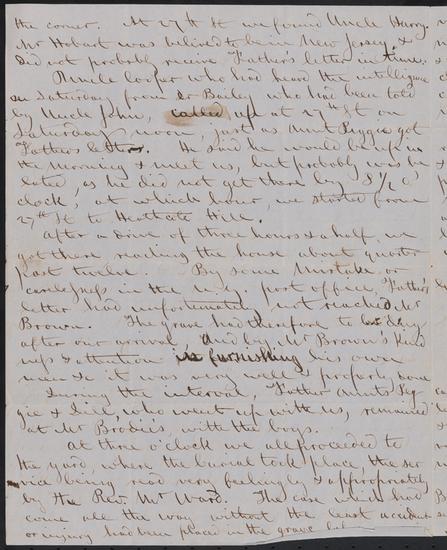 the corner. At 27th St we found Uncle Harry.
Mr Hobart was believed to be in New Jersey, &
did not probably receive Father's letter in time.
Uncle Cooper who had heard the intelligence
on Saturday from Dr Bailey who had been told
by Uncle John, called up at 27th St on
Saturday noon, just as Aunt Peggie got
Father's letter. He said he would be up in
the morning & meet us, but probably was be
lated, as he did not get there by 8 1/2 O'
clock, at which hour, we started from
27th St to Heathcote Hill.
After a drive of three hours & a half, we
got there reaching the house about quarter
past twelve. By some mistake or
carelessness in the N.Y. post office, Father's
letter had unfortunately not reached Mr
Brown. The grave had therefore to be dug
after our arrival, and by Mr Brown's kind
ness & attention in furnishing his own
men & it was very well & properly done
During the interval, Father Aunts Peg
gie & Lill, who went up with us, remained
at Mr Brodie's with the boys.
At three o'clock we all proceeded to
the yard, where the burial took place, the ser
vice being read very feelingly & appropriately
by the Rev. Mr Ward. The case which had
come all the way without the least accident
or injury had been placed in the grave